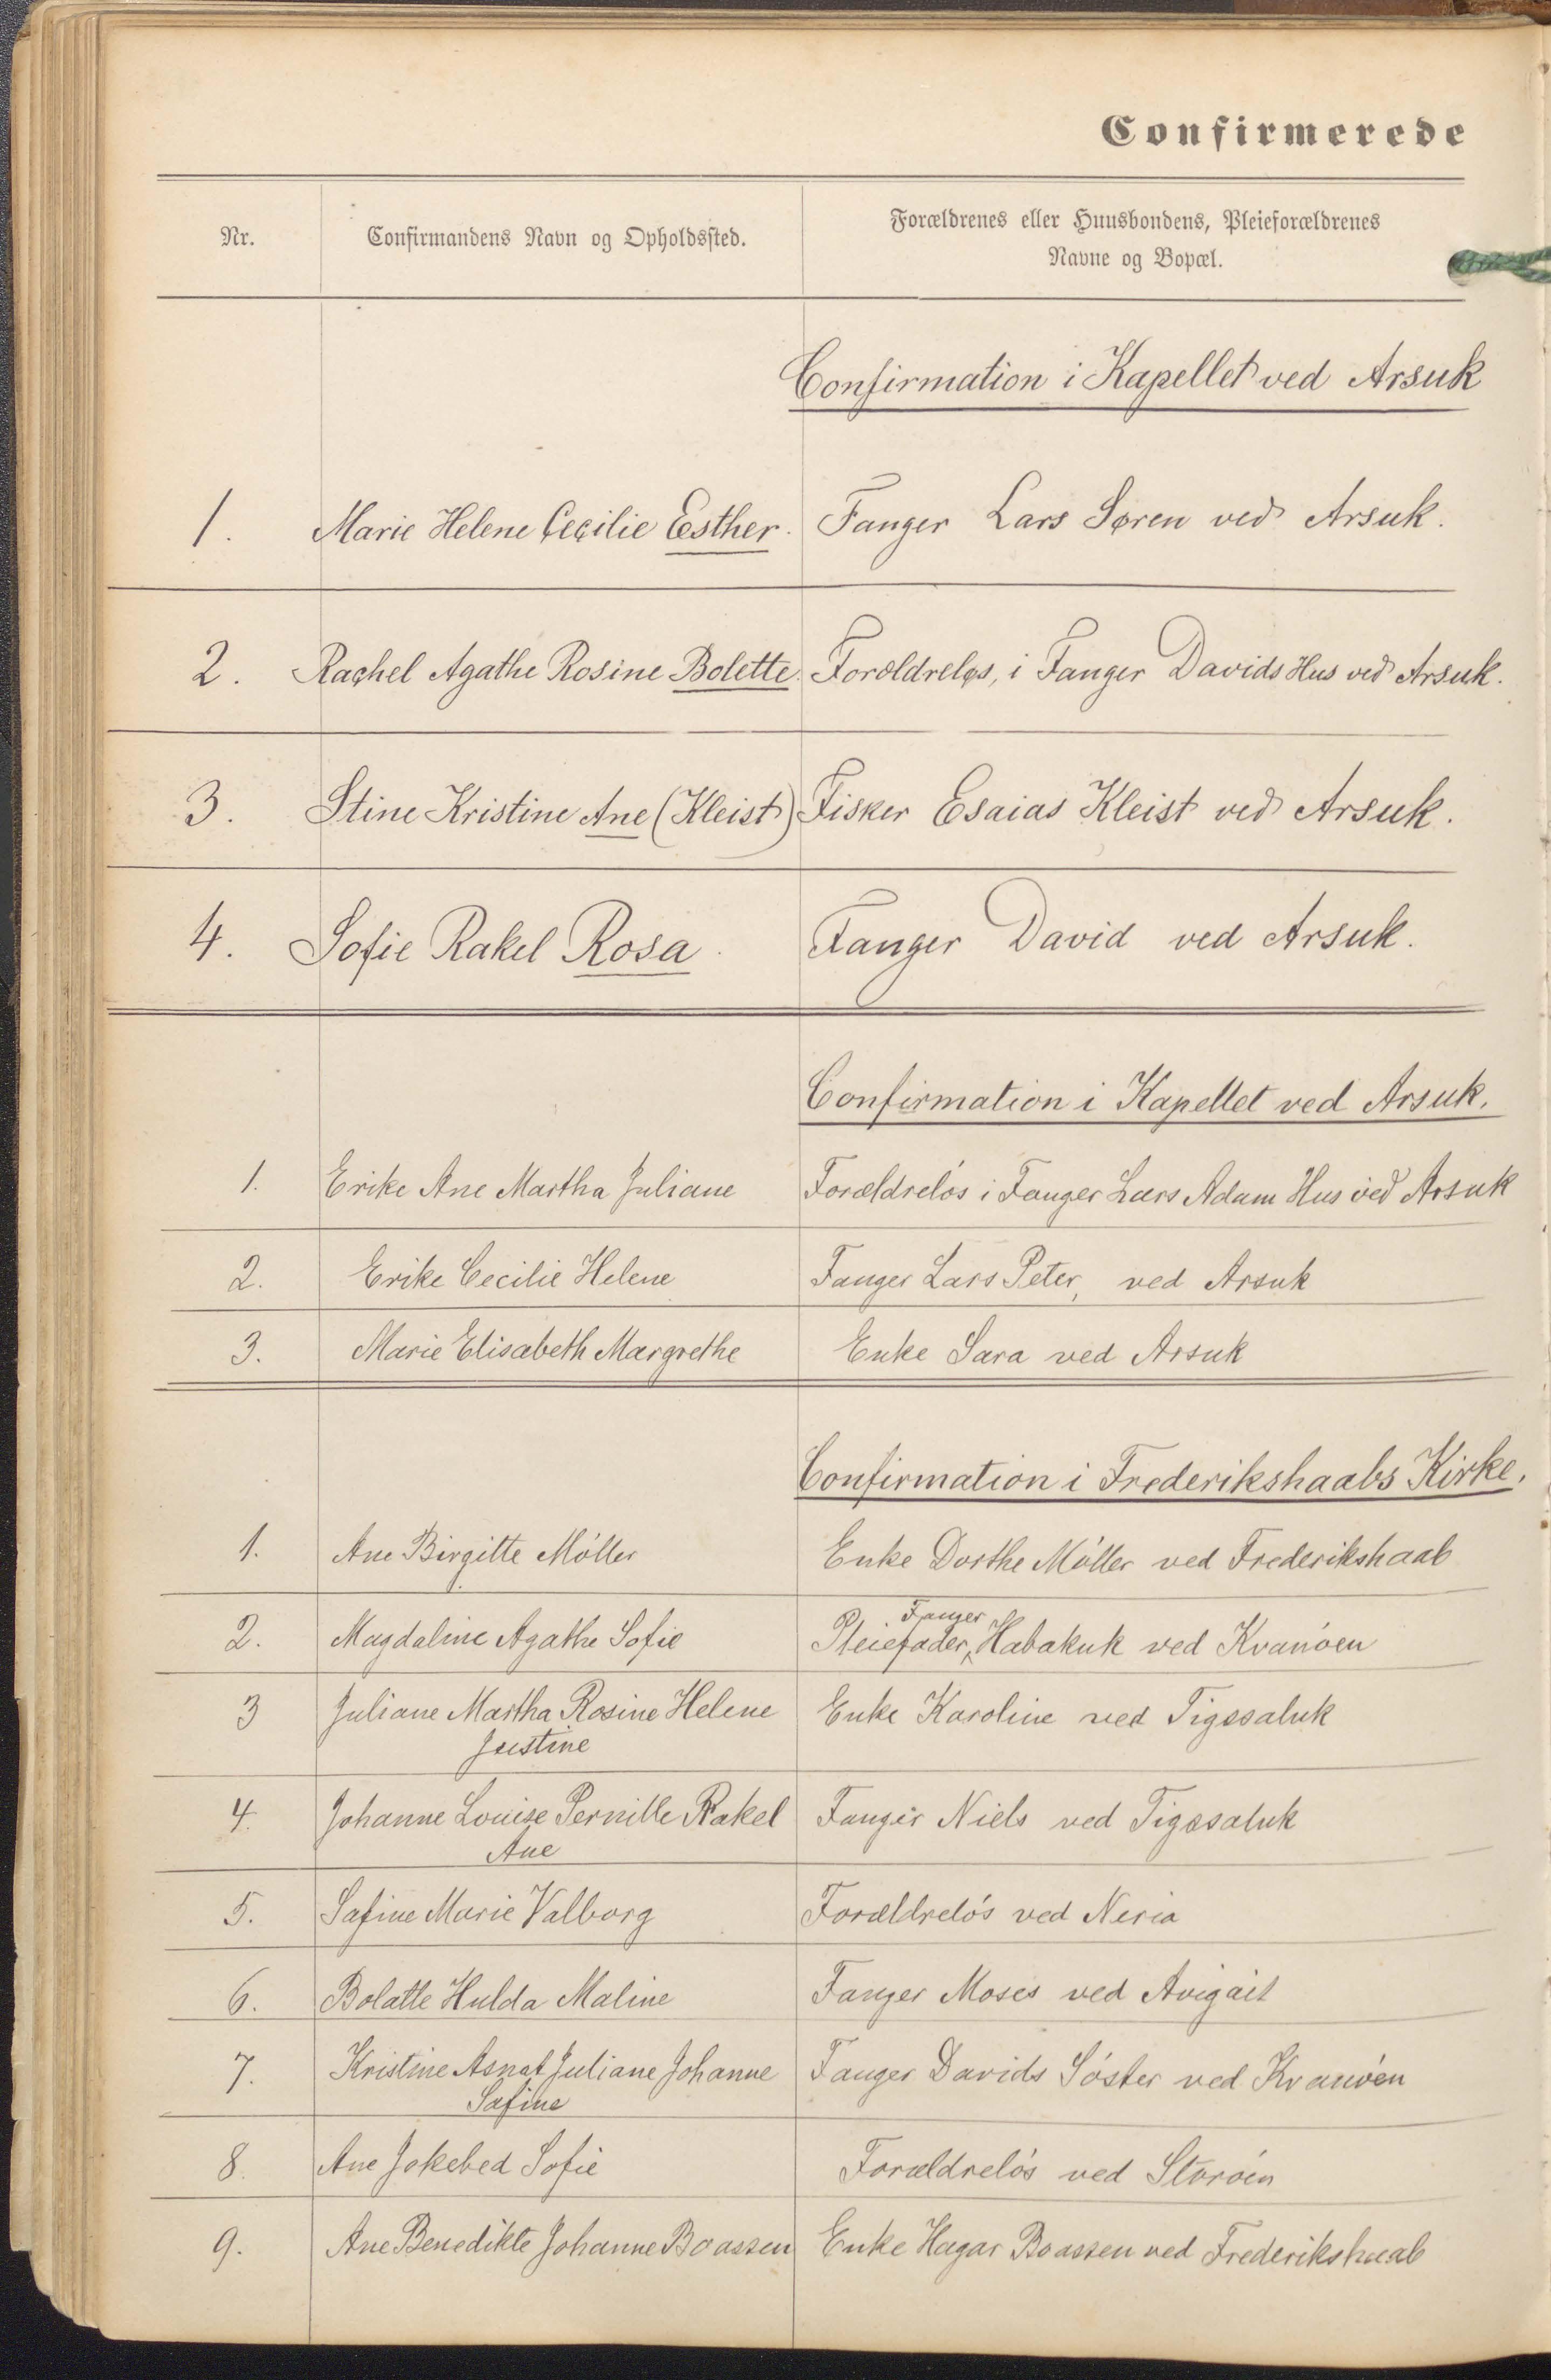 Confirmerede
Nr. Confirmandens Navn og Opholdssted. Forældrenes eller Huusbondens, Pleieforældrenes
Navne og Bopæl.
Confirmation i Kapellet ved Arsuk
1. Marie Helene Cecilie Esther. Fanger Lars Søren ved Arsuk.
2. Rachel Agathe Rosine Bolette. Forældreløs, i Fanger Davids Hus ved Arsuk.
3. Stine Kristine Ane (Kleist) Fisker Esaias Kleist ved Arsuk.
4. Sofie Rakel Rosa. Fanger David ved Arsuk.
Confirmation i Kapellet ved Arsuk.
1. Erike Ane Martha Juliane Forældreløs i Fanger Lars Adam Hus ved Arsuk
2. Erike Cecilie Helene Fanger Lars Peter, ved Arsuk
3. Marie Elisabeth Margrethe Enke Sara ved Arsuk
Confirmation i Frederikshaabs Kirke.
1. Ane Birgitte Möller Enke Dorthe Möller ved Frederikshaab
Fanger
2. Magdaline Agathe Sofie Pleiefader, Habakuk ved Kvanöen
3 Juliane Martha Rosine Helene Enke Karoline ved Tigssaluk
Justine
4. Johanne Louise Pernille Rakel Fanger Niels ved Tigssaluk
Ane
5. Safine Marie Valborg Forældrelös ved Neria
6. Bolatte Hulda Maline Fanger Moses ved Avigait
7. Kristine Asnat Juliane Johanne Fanger Davids Söster ved Kvanöen
Safine
8. Ane Jokebed Sofie Forældrelös ved Storöen
9. Ane Benedikte Johanne Boassen Enke Hagar Boassen ved Frederikshaab